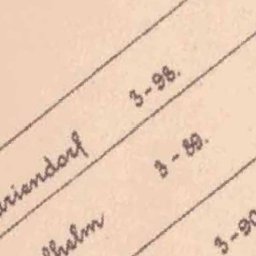 ariendorf 3-98.
lhelm 3-89.
3-90